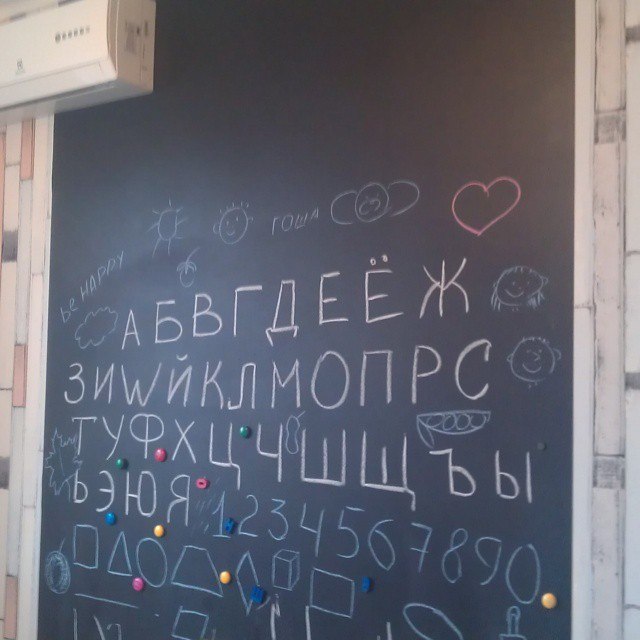 гоша
Be HAPPY
А Б В Г Д Е Ё Ж
З И W Й К Л М О П Р С
Т У Ф Х Ц Ч Ш Щ Ъ Ы
Ь Э Ю Я
1 2 3 4 5 6 7 8 9 0